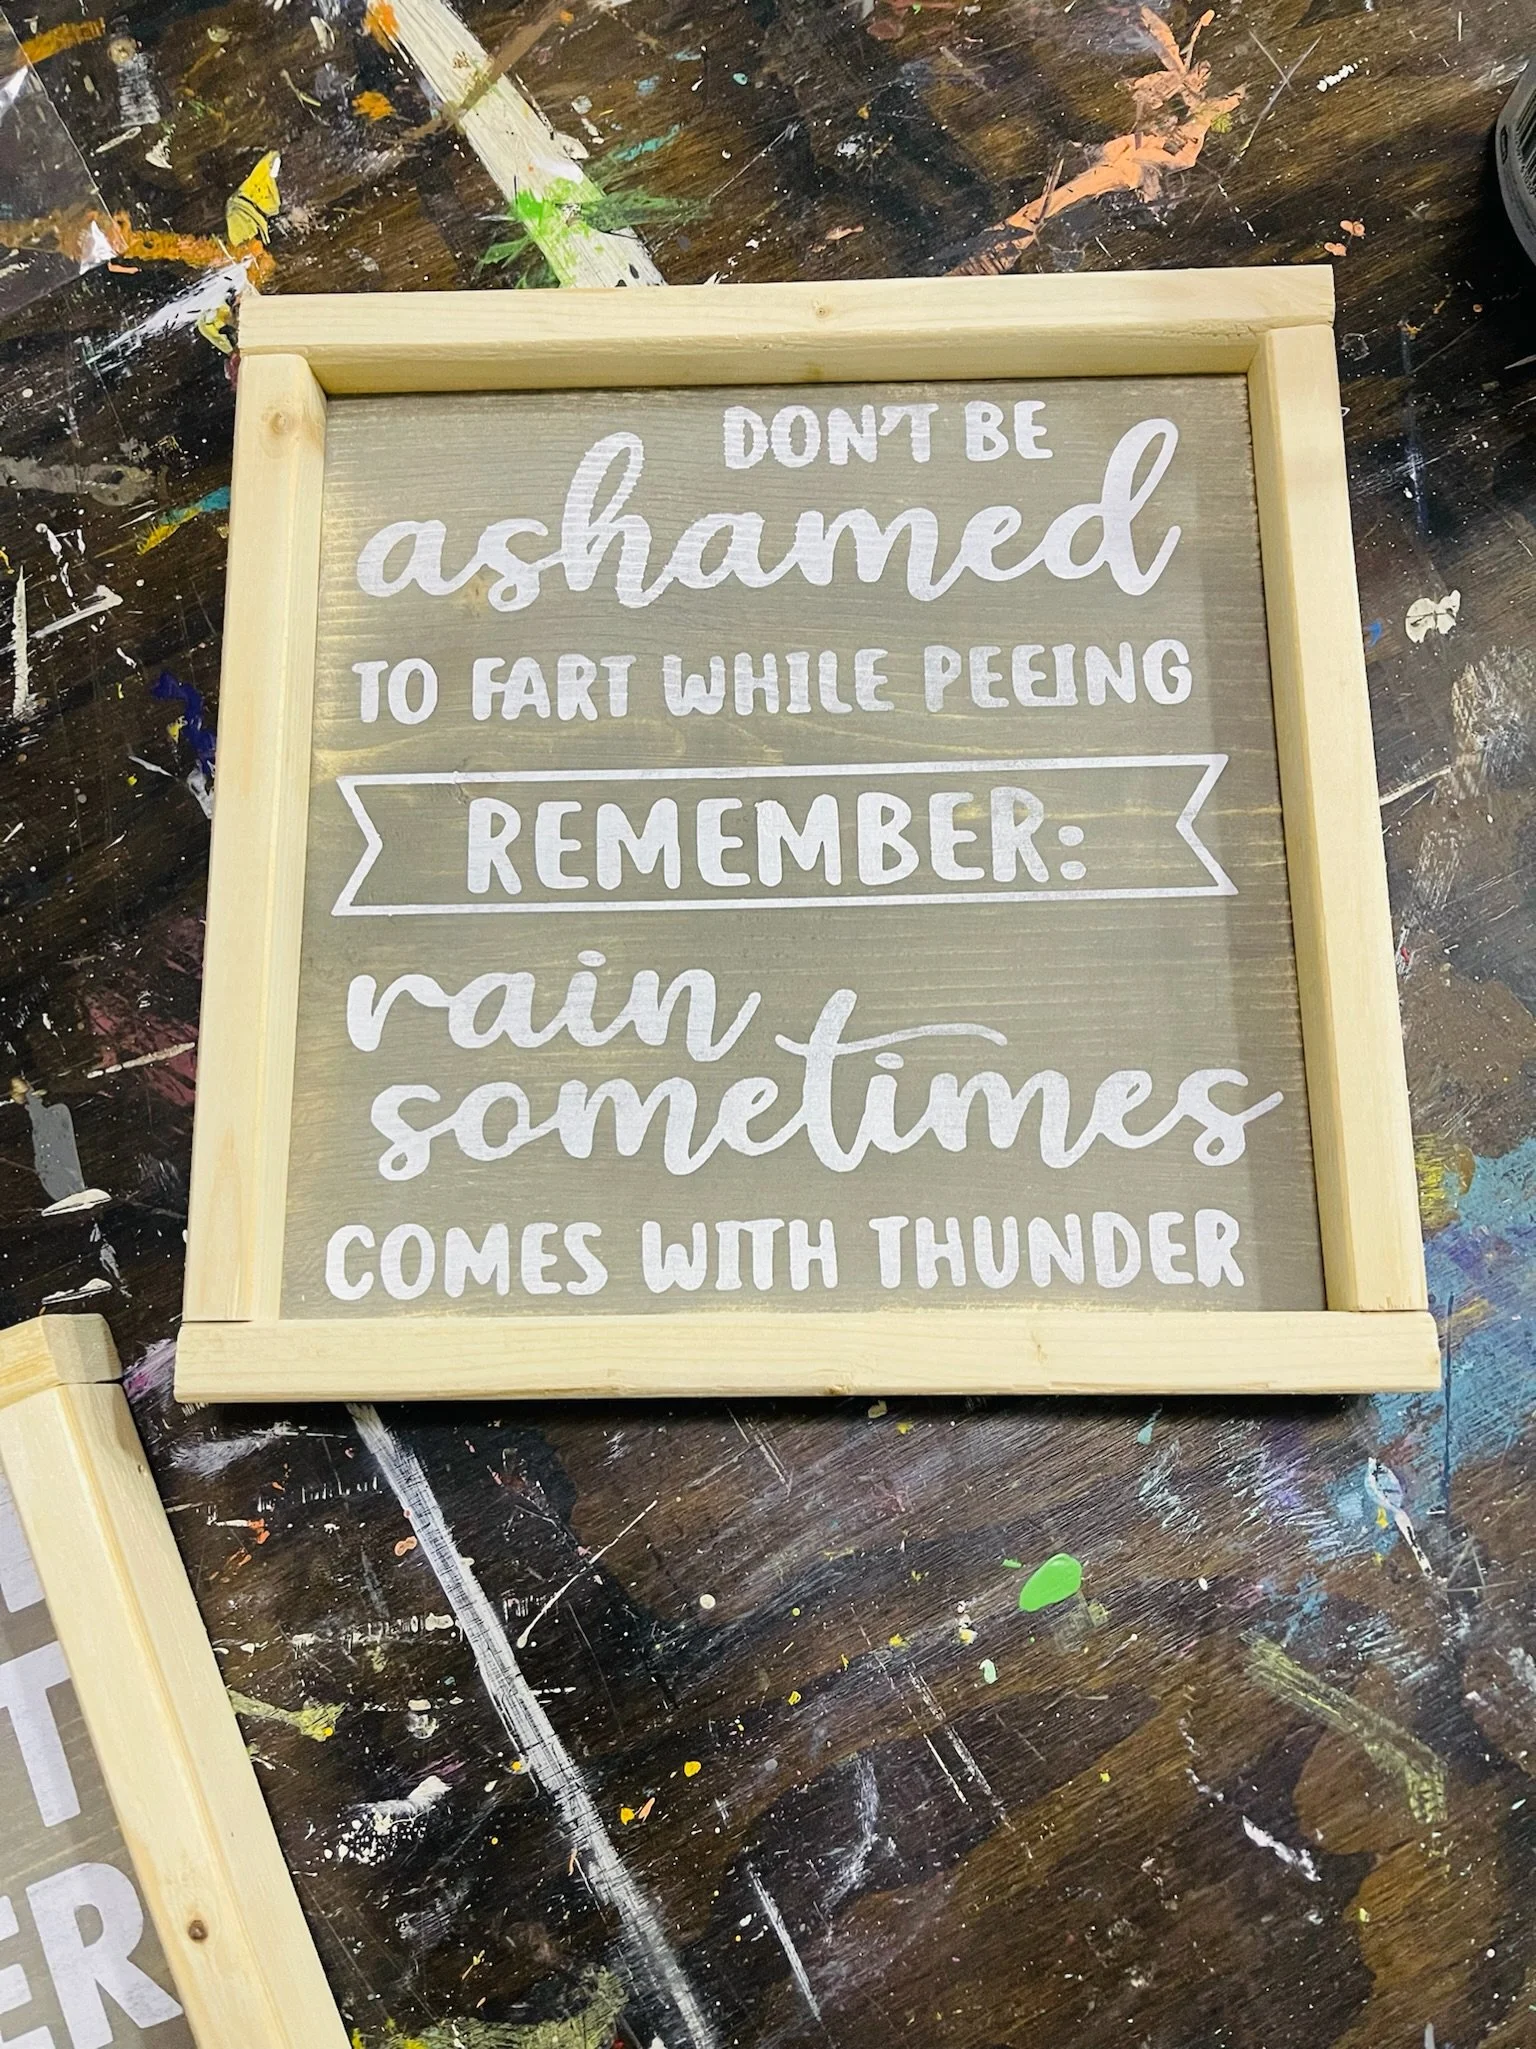 DON'T BE
ashamed
TO FART WHILE PEEING
REMEMBER:
rain
sometimes
COMES WITH THUNDER